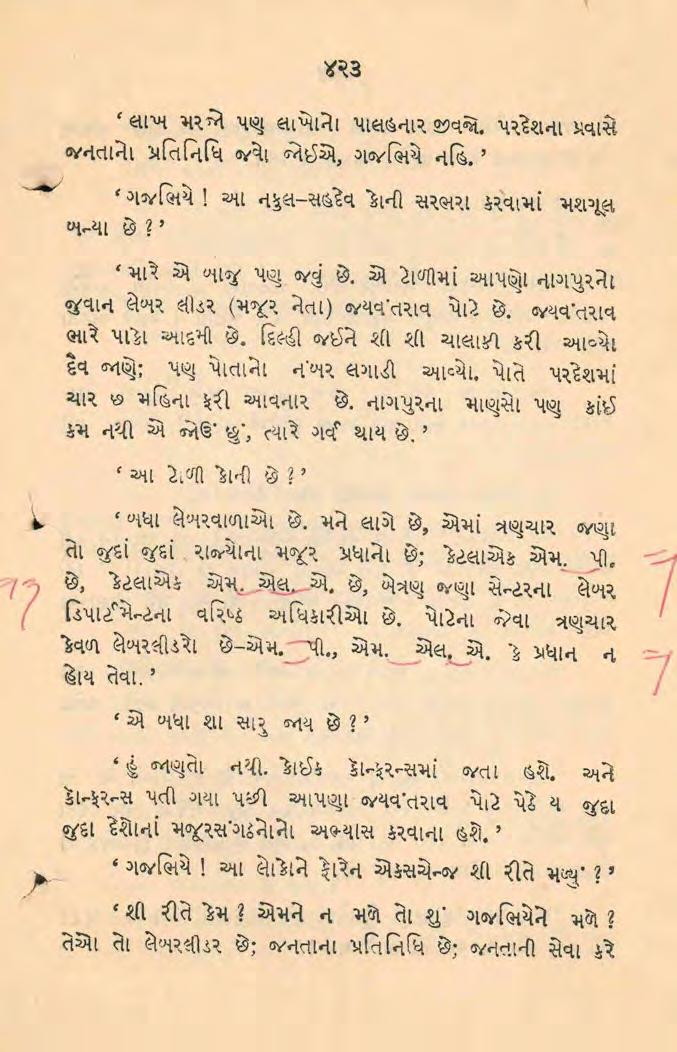 ૪૨૩
‘લાખ મરજો પણ લાખોનો પાલહનાર જીવજો. પરદેશના પ્રવાસે
જનતાનો પ્રતિનિધિ જવો જોઈએ, ગજભિયે નહિ.’
‘ગજભિયે ! આ નકુલ–સહદેવ કોની સરભરા કરવામાં મશગૂલ
બન્યા છે ?’
‘મારે એ બાજુ પણ જવું છે. એ ટોળીમાં આપણો નાગપુરનો
જુવાન લેબર લીડર (મજૂર નેતા) જયવંતરાવ પોટે છે. જયવંતરાવ
ભારે પાકો આદમી છે. દિલ્હી જઈને શી શી ચાલાકી કરી આવ્યો
દૈવ જાણે; પણ પોતાનો નંબર લગાડી આવ્યો. પોતે પરદેશમાં
ચાર છ મહિના ફરી આવનાર છે. નાગપુરના માણસો પણ કાંઈ
કમ નથી એ જોઉં છું, ત્યારે ગર્વ થાય છે.’
‘આ ટોળી કોની છે ?’
‘બધા લેબરવાળાઓ છે. મને લાગે છે, એમાં ત્રણચાર જણા
તો જુદાં જુદાં રાજ્યોના મજૂર પ્રધાનો છે; કેટલાએક એમ. પી.
છે, કેટલાએક એમ. એલ. એ. છે, બેત્રણ જણા સેન્ટરના લેબર
ડિપાર્ટમેન્ટના વરિષ્ઠ અધિકારીઓ છે. પોટેના જેવા ત્રણચાર
કેવળ લેબરલીડરો છે–એમ. પી., એમ. એલ. એ. કે પ્રધાન ન
હોય તેવા.’
‘એ બધા શા સારુ જાય છે ?’
‘હું જાણતો નથી. કોઈક કોન્ફરન્સમાં જતા હશે. અને
કોન્ફરન્સ પતી ગયા પછી આપણા જયવંતરાવ પોટે પેઠે ય જુદા
જુદા દેશોનાં મજૂરસંગઠનોનો અભ્યાસ કરવાના હશે.’
‘ગજભિયે ! આ લોકોને ફોરેન એક્સચેન્જ શી રીતે મળ્યું ?’
‘શી રીતે કેમ ? એમને ન મળે તો શું ગજભિયેને મળે ?
તેઓ તો લેબરલીડર છે; જનતાના પ્રતિનિધિ છે; જનતાની સેવા કરે